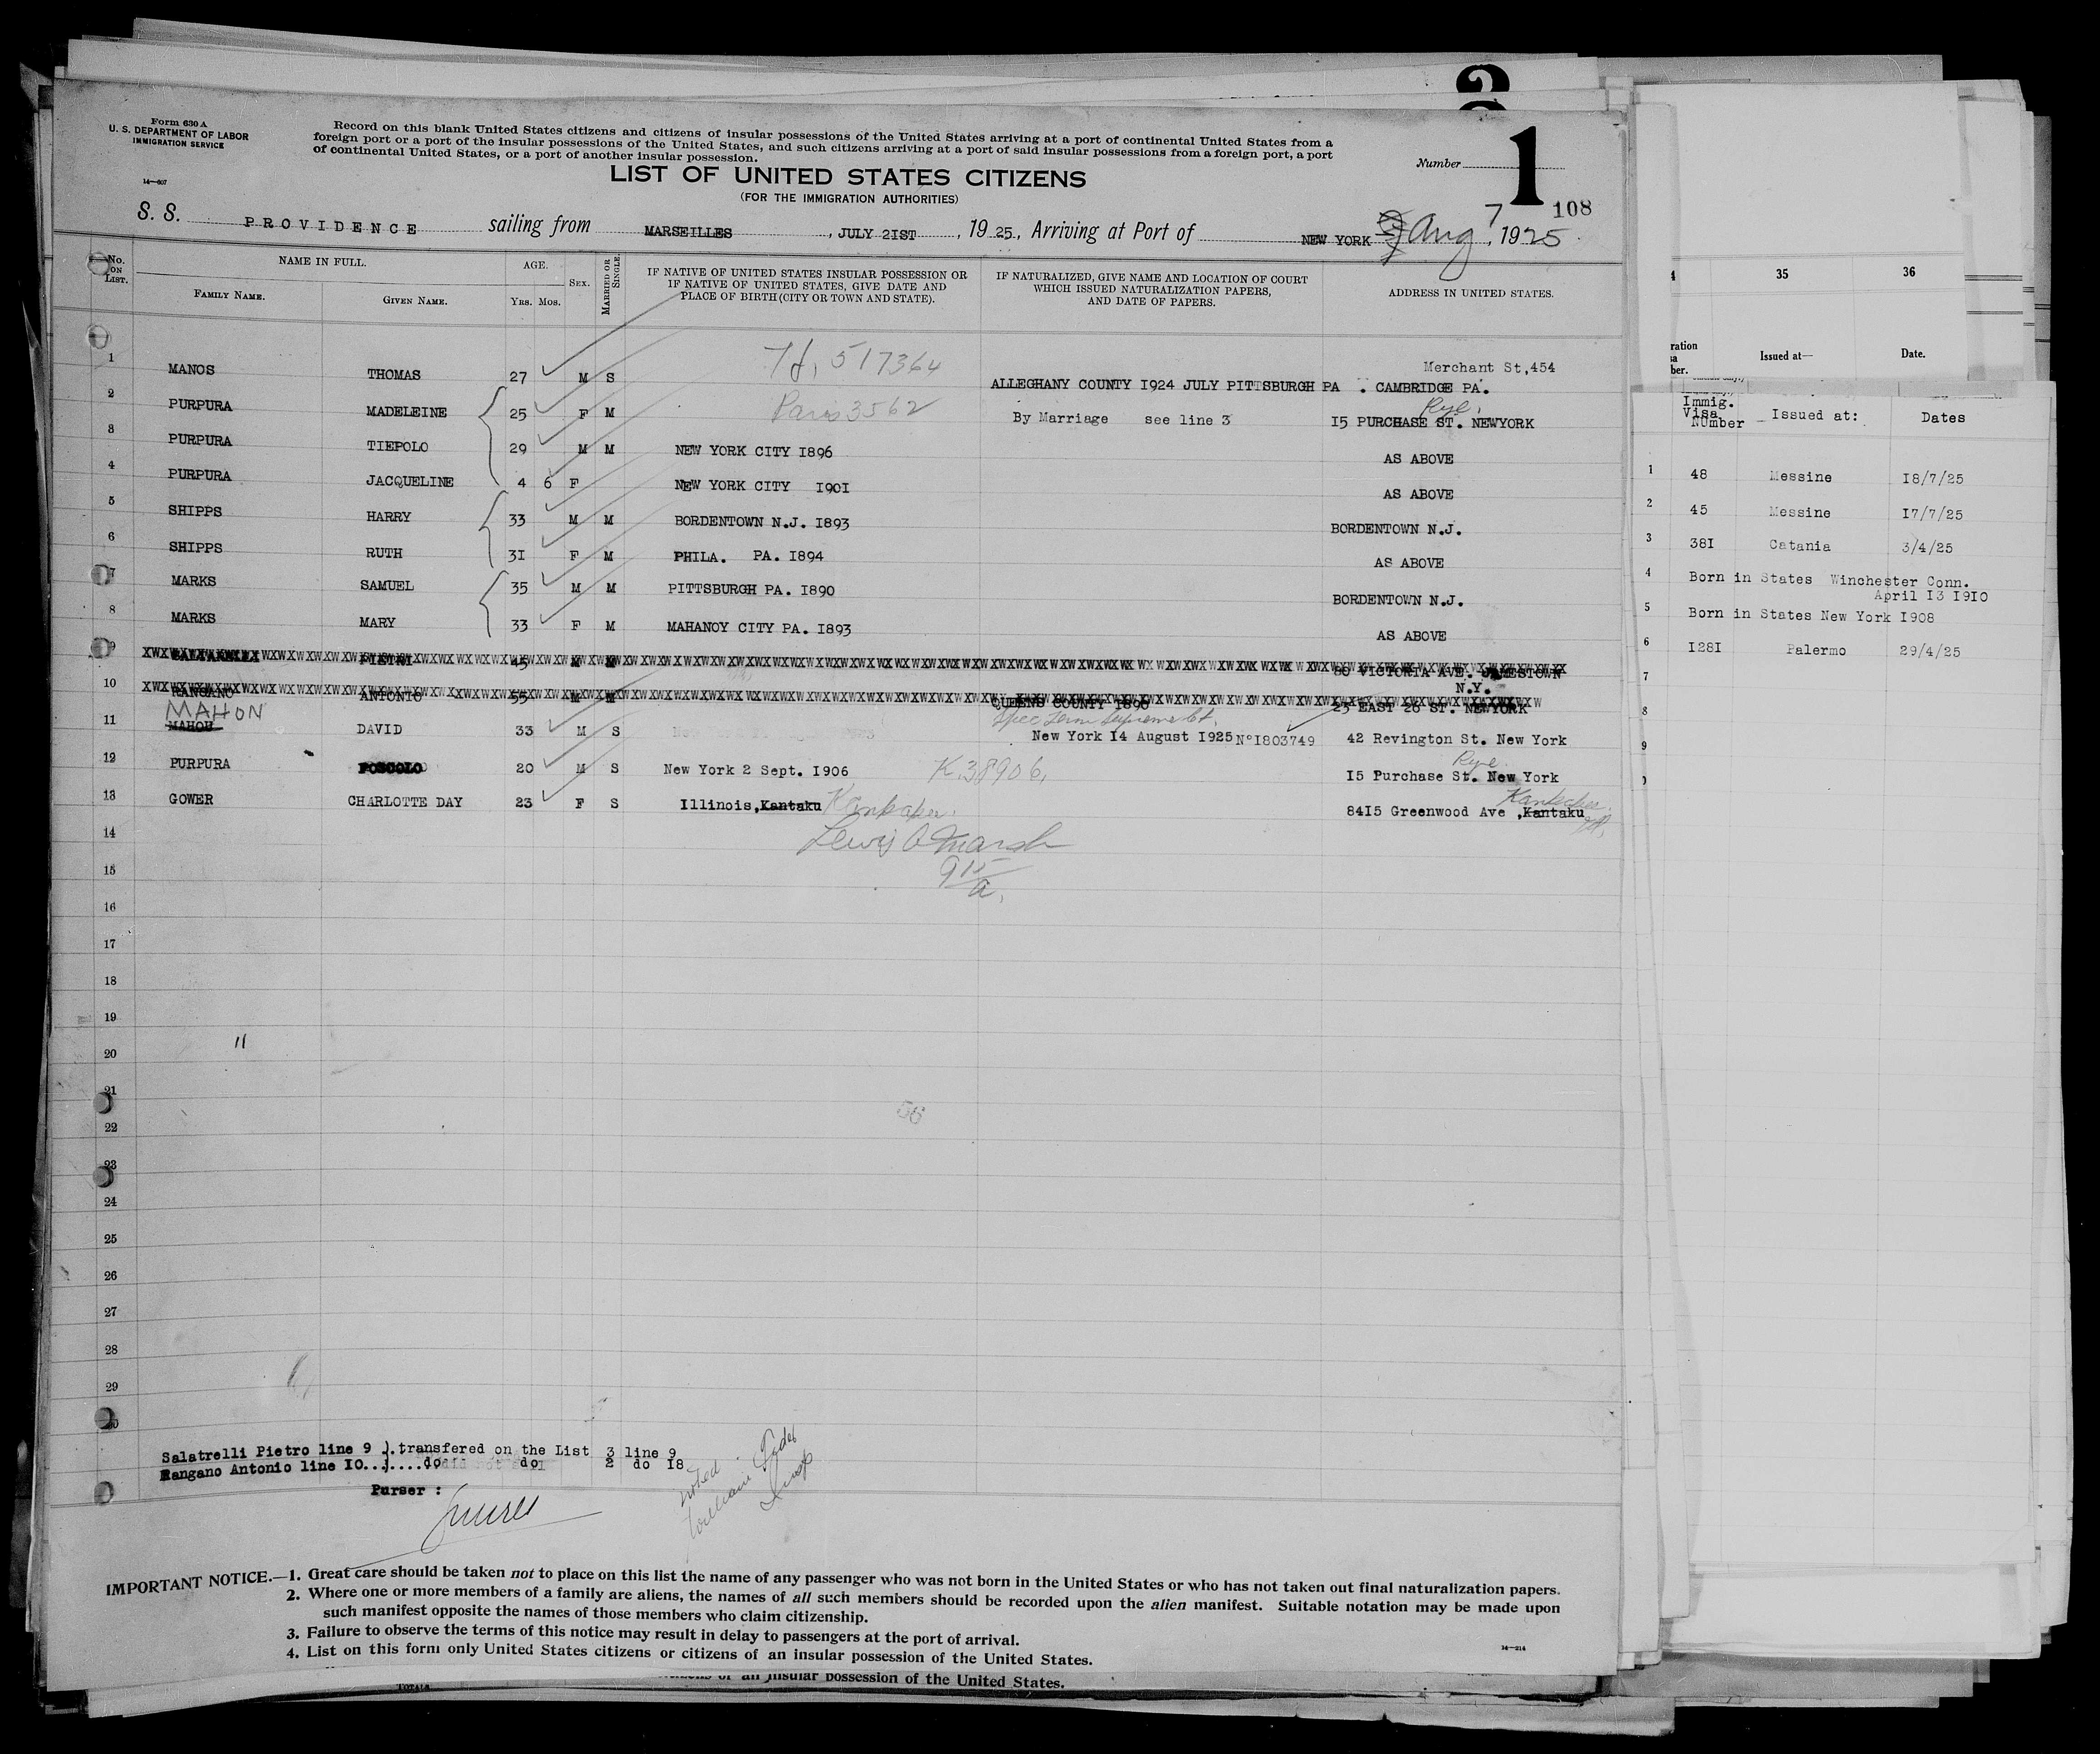 2
Form 630 A
U. S. DEPARTMENT OF LABOR
IMMIGRATION SERVICE
14—607
Record on this blank United States citizens and citizens of insular possessions of the United States arriving at a port of continental United States from a
foreign port or a port of the insular possessions of the United States, and such citizens arriving at a port of said insular possessions from a foreign port, a port
of continental United States, or a port of another insular possession.
Number 1
108
LIST OF UNITED STATES CITIZENS
(FOR THE IMMIGRATION AUTHORITIES)
S. S. PROVIDENCE sailing from MARSEILLES, JULY 21ST, 1925, Arriving at Port of NEW YORK Aug 7, 1925
No. ON LIST.
NAME IN FULL.
FAMILY NAME.
GIVEN NAME.
AGE.
YRS. MOS.
SEX.
MARRIED OR SINGLE.
IF NATIVE OF UNITED STATES INSULAR POSSESSION OR
IF NATIVE OF UNITED STATES, GIVE DATE AND
PLACE OF BIRTH (CITY OR TOWN AND STATE).
IF NATURALIZED, GIVE NAME AND LOCATION OF COURT
WHICH ISSUED NATURALIZATION PAPERS,
AND DATE OF PAPERS.
ADDRESS IN UNITED STATES.
517364
Merchant St,454
1 MANOS THOMAS 27 M S ALLEGHANY COUNTY 1924 JULY PITTSBURGH PA . CAMBRIDGE PA.
Paris 3562
Rye.
2 PURPURA MADELEINE 25 F M By Marriage see line 3 15 PURCHASE ST. NEWYORK
3 PURPURA TIEPOLO 29 M M NEW YORK CITY 1896 AS ABOVE
4 PURPURA JACQUELINE 4 6 F NEW YORK CITY 1901 AS ABOVE
5 SHIPPS HARRY 33 M M BORDENTOWN N.J. 1893 BORDENTOWN N.J.
6 SHIPPS RUTH 31 F M PHILA. PA. 1894 AS ABOVE
7 MARKS SAMUEL 35 M M PITTSBURGH PA. 1890 BORDENTOWN N.J.
8 MARKS MARY 33 F M MAHANOY CITY PA. 1893 AS ABOVE
9 PIETRI 45 M M 80 VICTORIA AVE. JAMESTOWN
N.Y.
10 RANGANO ANTONIO 55 M M QUEENS COUNTY 1890 23 EAST 26 ST. NEWYORK
MAHON
Spec Term Supreme Ct.
11 MAHOU DAVID 33 M S New York 14 August 1925 N°1803749 42 Revington St. New York
Rye
12 PURPURA FOSCOLO 20 M S New York 2 Sept. 1906 K.38906. 15 Purchase St. New York
13 GOWER CHARLOTTE DAY 23 F S Illinois,Kantaku 8415 Greenwood Ave ,Kantaku
14
Lewis A Marsh
15
9 15/a.
16
17
18
19
20
11
21
22
56
23
24
25
26
27
28
29
30
Salatrelli Pietro line 9 ).transfered on the List 3 line 9
Rangano Antonio line 10...)....do do 2 do 18
Purser :
noted
IMPORTANT NOTICE.—1. Great care should be taken not to place on this list the name of any passenger who was not born in the United States or who has not taken out final naturalization papers.
2. Where one or more members of a family are aliens, the names of all such members should be recorded upon the alien manifest. Suitable notation may be made upon
such manifest opposite the names of those members who claim citizenship.
3. Failure to observe the terms of this notice may result in delay to passengers at the port of arrival.
4. List on this form only United States citizens or citizens of an insular possession of the United States.
14—214
an insular possession of the United States.
TOTALS
35 36
ration
ber.
Issued at— Date.
Immig.
Visa
NUmber — Issued at: Dates
1 48 Messine 18/7/25
2 45 Messine 17/7/25
3 381 Catania 3/4/25
4 Born in States Winchester Conn.
April 13 1910
5 Born in States New York 1908
6 1281 Palermo 29/4/25
7
8
9